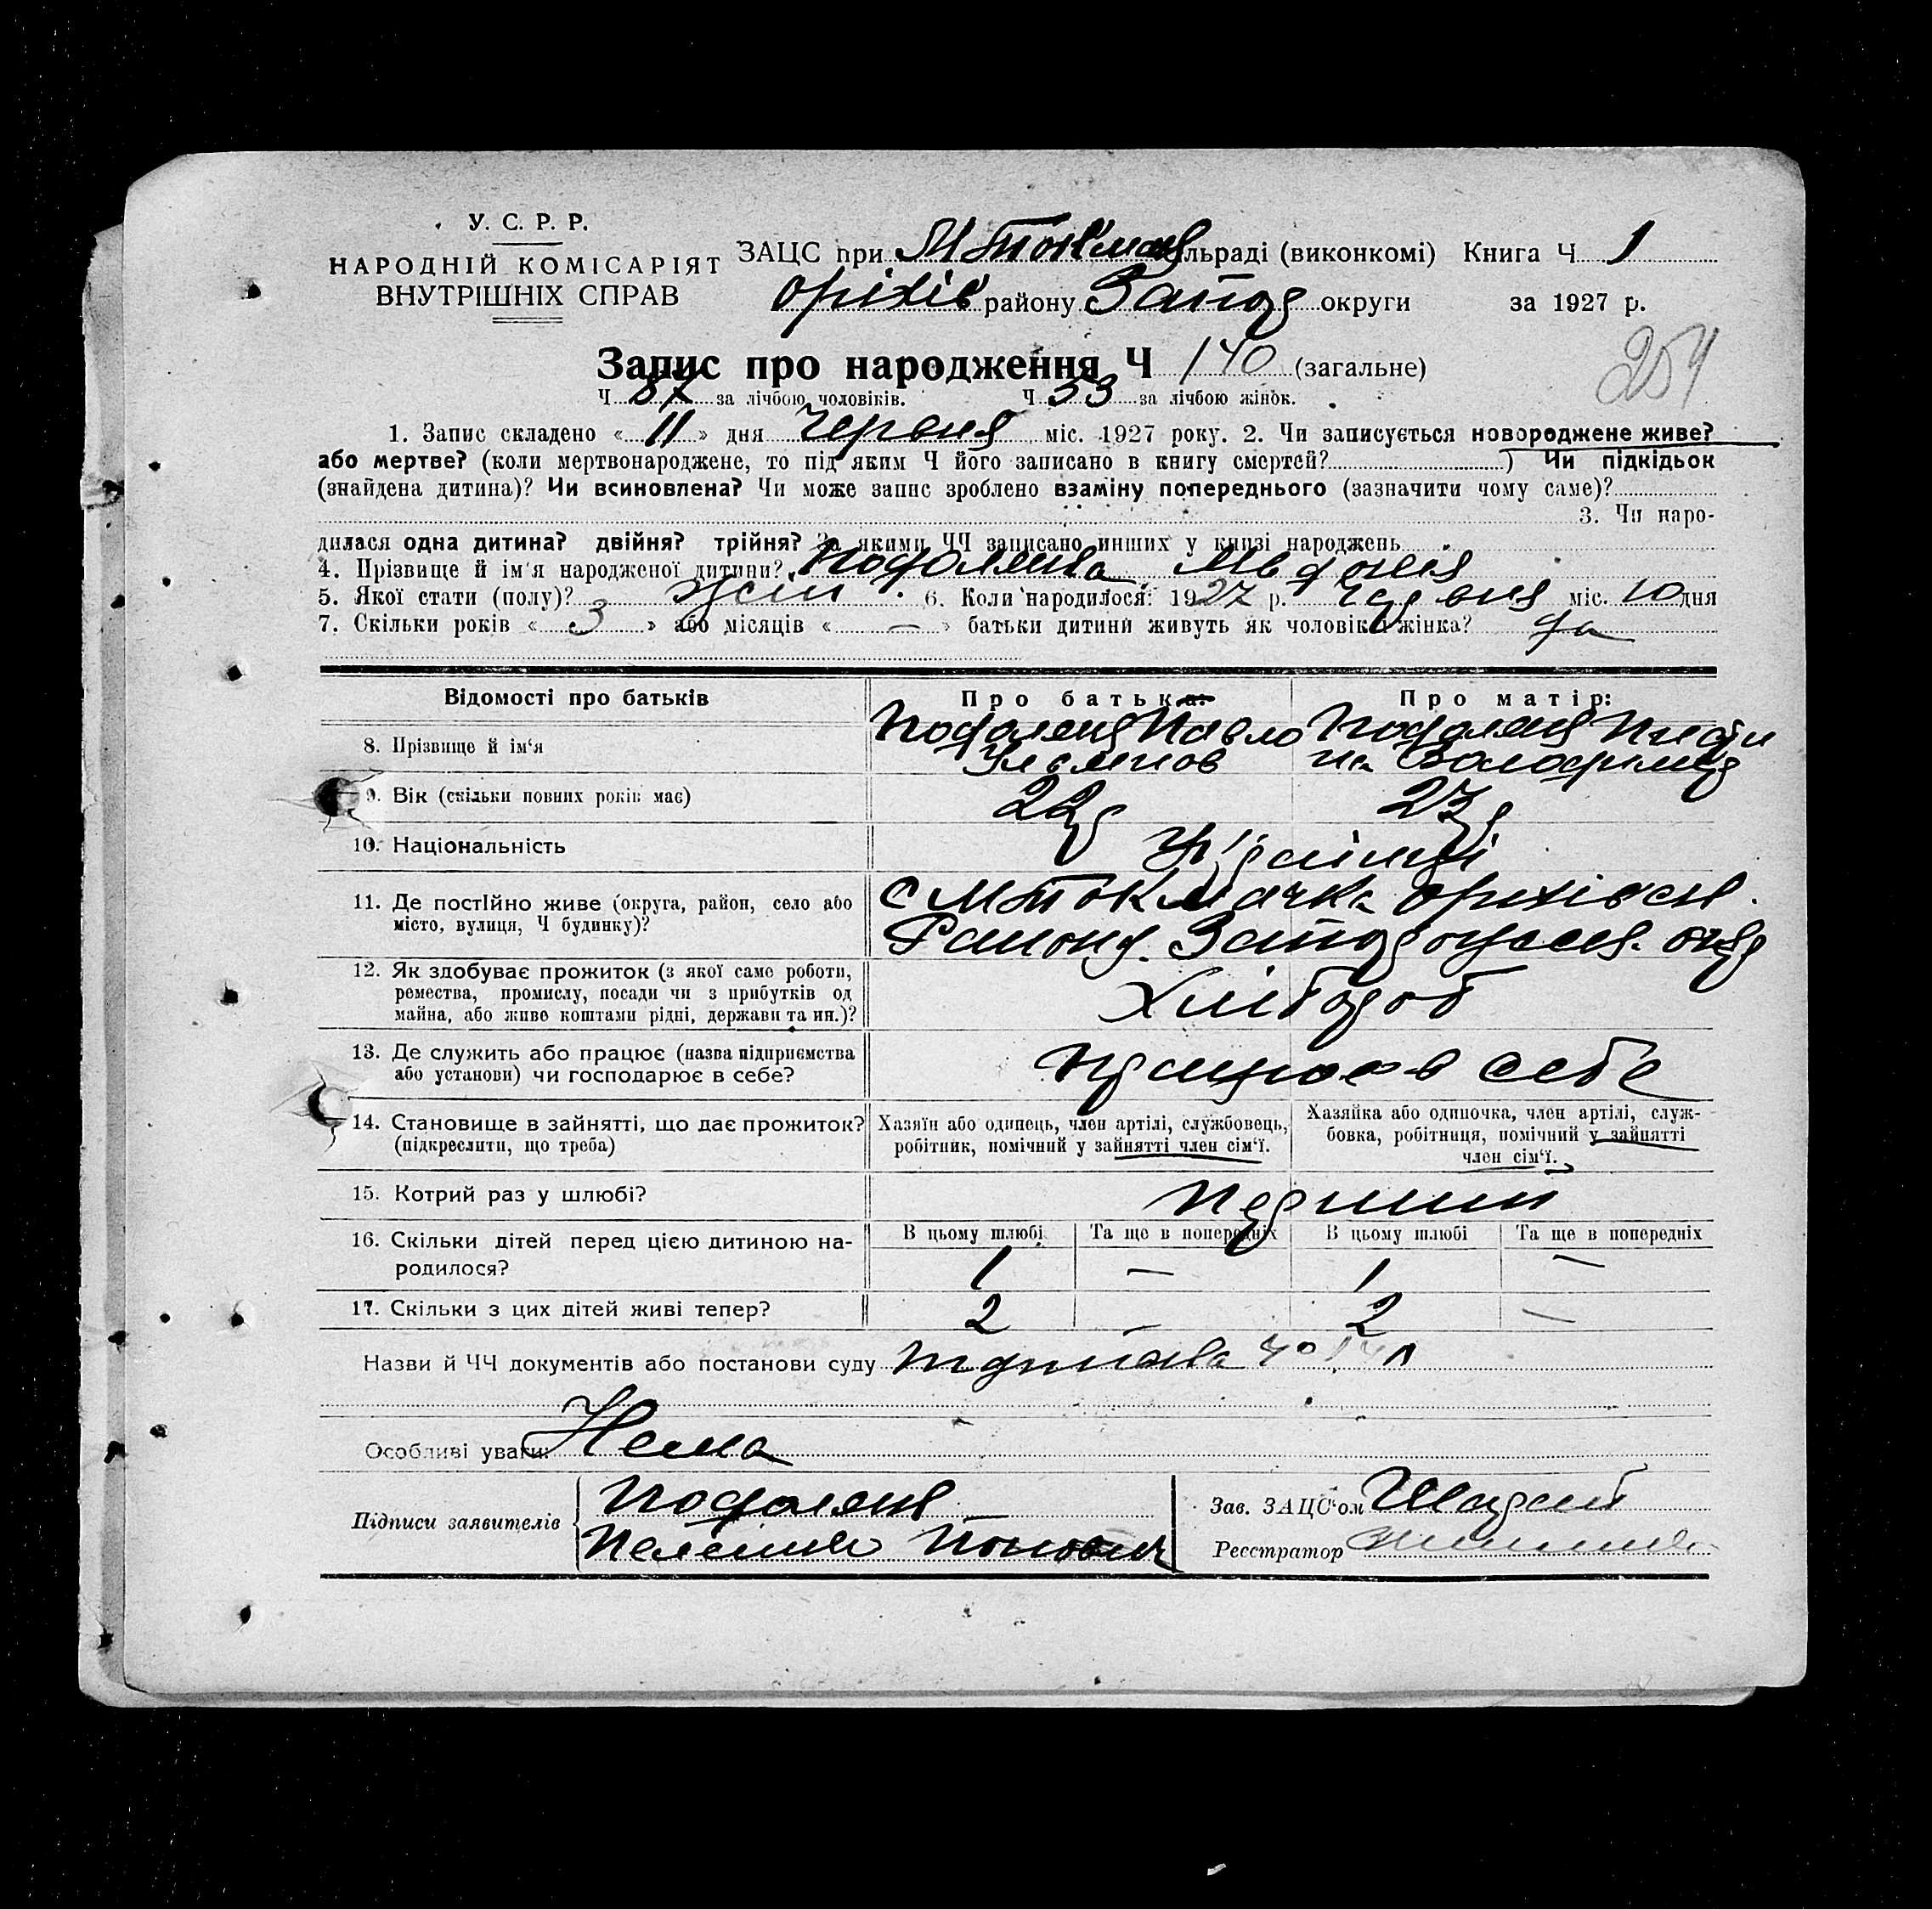 У. С. Р. Р.
НАРОДНІЙ КОМІСАРІЯТ
ВНУТРІШНІХ СПРАВ
ЗАЦС при М Токмач льраді (виконкомі) Книга Ч 1
Оріхів району Запор округи за 1927 р.
254
Запис про народження Ч 140 (загальне)
Ч 87 за лічбою чоловіків. Ч 53 за лічбою жінок.
1. Запис складено « 11 » дня Червня міс. 1927 року. 2. Чи записується новороджене живе?
або мертве? (коли мертвонароджене, то під яким Ч його записано в книгу смертей? ) Чи підкідьок
(знайдена дитина)? Чи всиновлена? Чи може запис зроблено взаміну попереднього (зазначити чому саме)?
3. Чи наро-
дилася одна дитина? двійня? трійня? За якими ЧЧ записано инших у книзі народжень
4. Прізвище й ім'я народженої дитини?
5. Якої стати (полу)? жін 6. Коли народилося: 1927 р. Червня міс. 10 дня
7. Скільки років « 3 » або місяців « — » батьки дитини живуть як чоловік і жінка? да
Відомості про батьків Про батька: Про матір:
8. Прізвище й ім'я Подоляня Павло Подоляня
9. Вік (скільки повних років має) 22 р 23 р
10. Національність Українці
11. Де постійно живе (округа, район, село або
місто, вулиця, Ч будинку)?
С М Токмачка Оріхівськ.
Району. Запорожськ. окр
12. Як здобуває прожиток (з якої саме роботи,
ремества, промислу, посади чи з прибутків од
майна, або живе коштами рідні, держави та ин.)?
Хлібороб
13. Де служить або працює (назва підприємства
або установи) чи господарює в себе?
працює в себе
14. Становище в зайнятті, що дає прожиток?
(підкреслити, що треба)
Хазяїн або одинець, член артілі, службовець,
робітник, помічний у зайнятті член сім'ї.
Хазяйка або одиночка, член артілі, служ-
бовка, робітниця, помічний у зайнятті
член сім'ї.
15. Котрий раз у шлюбі? Перший
16. Скільки дітей перед цією дитиною на-
родилося?
В цьому шлюбі Та ще в попередніх В цьому шлюбі Та ще в попередніх
1 — 1 —
17. Скільки з цих дітей живі тепер? 2 — 2 —
Назви й ЧЧ документів або постанови суду
Особливі уваги: Нема
Підписи заявителів Подоляня
Зав. ЗАЦС'ом
Реєстратор